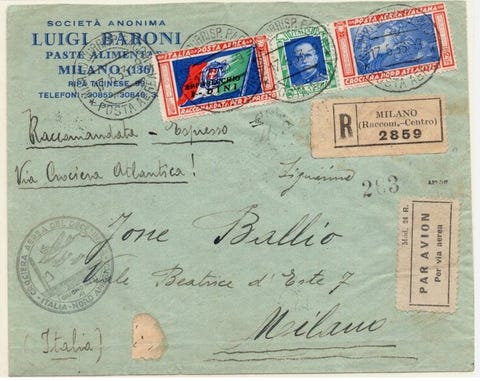 SOCIETÀ ANONIMA
LUIGI BARONI
PASTE ALIMENTARI
MILANO (136)
RIPA TICINESE, 99
TELEFONI: 30859 - 30848
POSTA AEREA ITALIANA
POSTA AEREA ITALIANA
CROCIERA NORD ATLANTICA
R
MILANO
(Raccom.-Centro)
2859
Raccomandata - Espresso
Via Crociera Atlantica!
Signorina
203
Jone Ballio
Viale Beatrice d'Este 7
Milano
(Italia)
CROCIERA AEREA DEL DECENNALE
ITALIA - NORD AMERICA
Mod. 24 R.
PAR AVION
Per via aerea